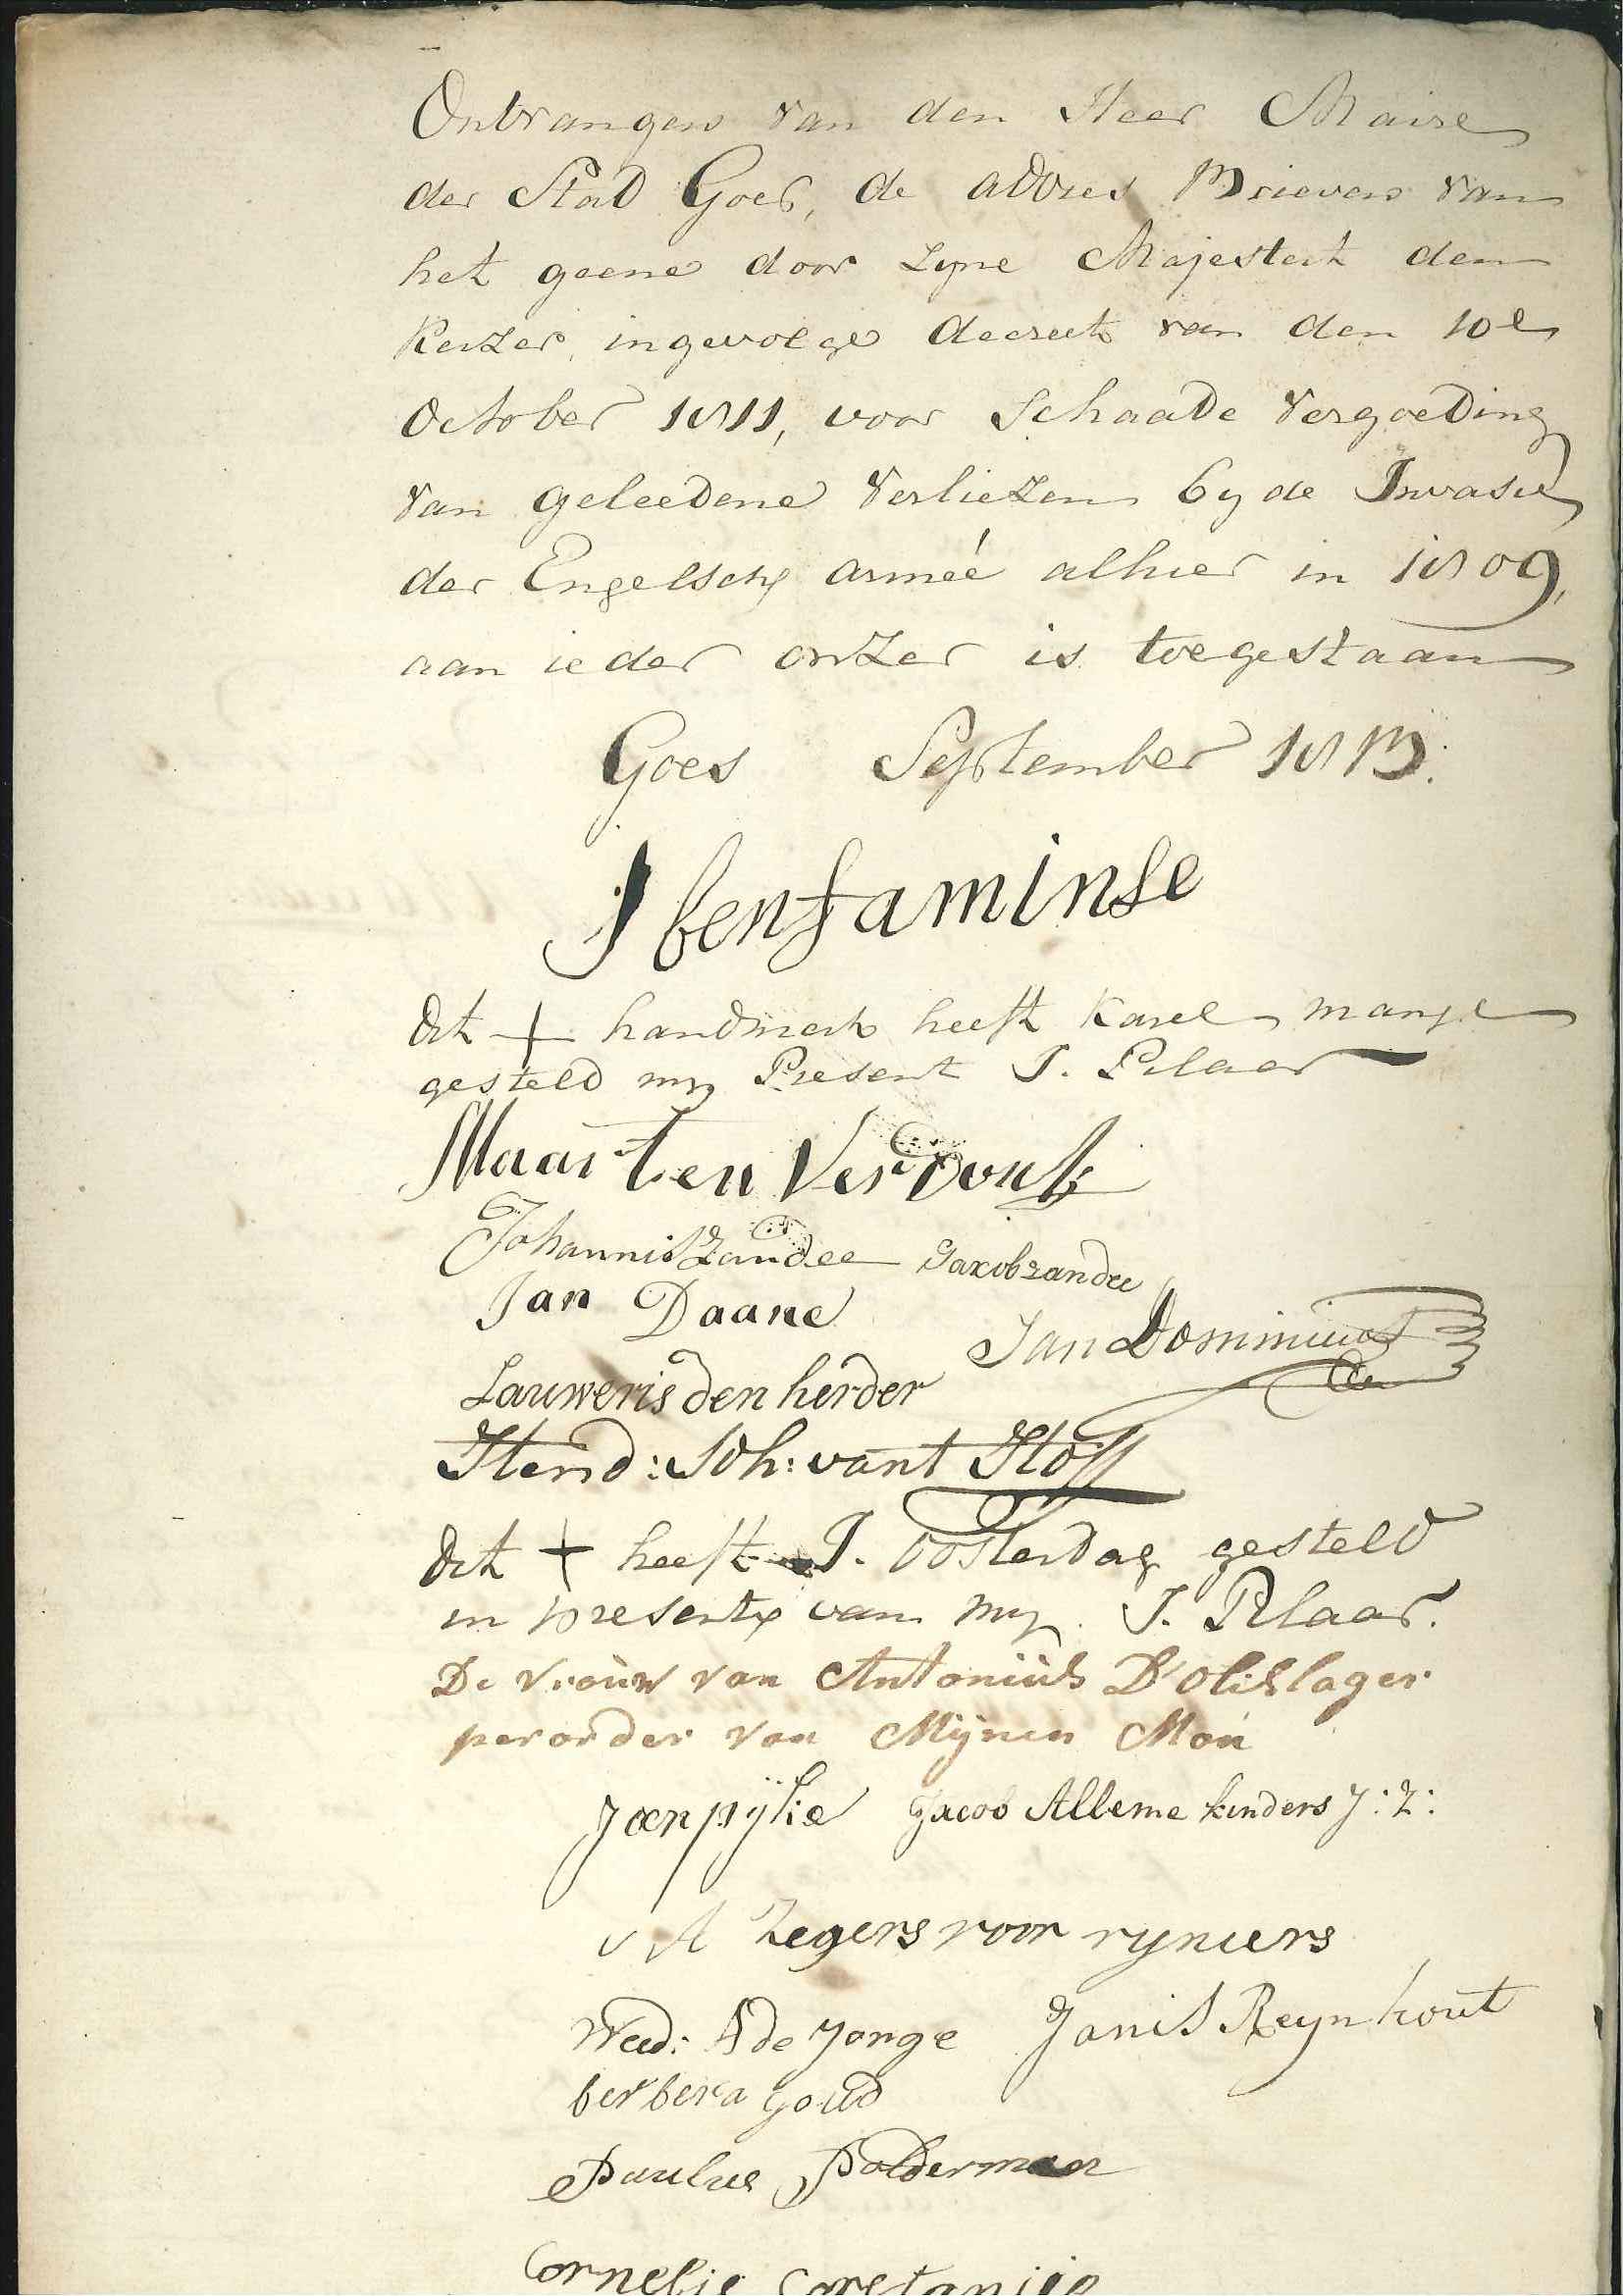 Ontvangen van den Heer Maire
der Stad Goes, de advies Brieven van
het geene door zyne Majesteit den
Keizer, ingevolge decreet van den 10e
October 1811, voor Schaade Vergoeding
van geleedene Verliezen by de Invasie
der Engelsche armeé alhier in 1809,
aan ieder onzer is toegestaan
Goes September 1813.
J benjaminse
Dit + handmerk heeft Karel
gesteld my Present J. Pilaar
Maarten Verdonk
Johannis Zandee Jacob zandee
Jan Daane
Jan Dominicus
Lauweris den herder
Hend: Joh: vant Hoff
Dit + heeft J. Oosterdag gesteld
in presentie van my. J. Pilaar.
De vrouw van Antoniüs D'olislager
per order van Mijnen Man
Jan pijke Jacob Alleme kinders J:Z:
Zegers voor ryniers
Wed: A de Jonge Janis Reynhout
berbera Goud
Paulus Polderman
Cornelis